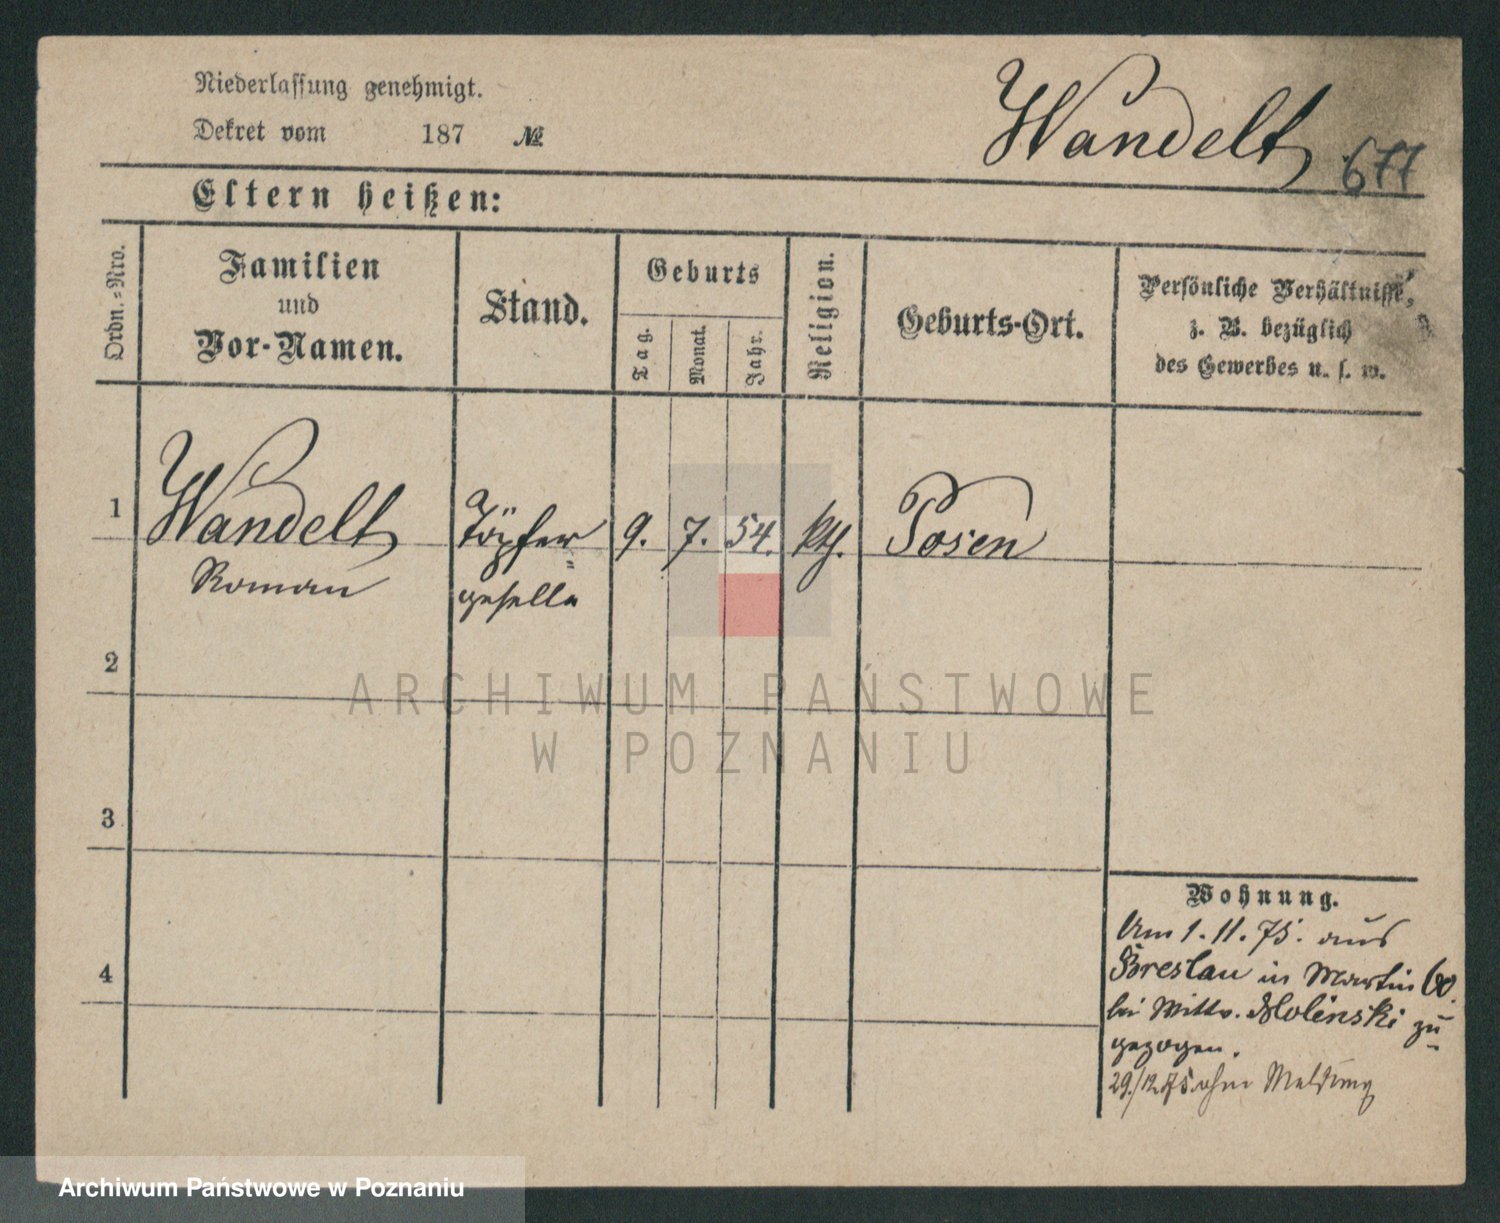 Niederlassung genehmigt.
Dekret vom 187 №
Wandelt 677
Eltern heißen:
Ordn.-Nro.
Familien
und
Vor-Namen.
Stand.
Geburts
Tag.
Monat.
Jahr.
Religion.
Geburts-Ort.
Persönliche Verhältnisse,
z. B. bezüglich
des Gewerbes u. s. w.
1
Wandelt
Roman
Töpfer=
geselle
9. 7. 54. kth. Posen
2
3
4
Wohnung.
Am 1. 11. 75. aus
Breslau in Martin 60.
bei Wittw. Molinski zu=
gezogen.
29/12 75 ohne Meldung
ARCHIWUM PAŃSTWOWE
W POZNANIU
Archiwum Państwowe w Poznaniu